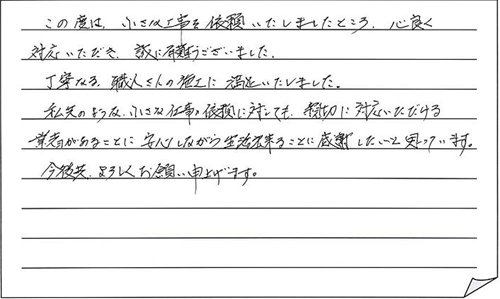 この度は、小さな工事を依頼いたしましたところ、心良く
対応いただき、誠に有難うございました。
丁寧なる、職人さんの施工に満足いたしました。
私共のような、小さな仕事の依頼に対しても、親切に対応いただける
業者があることに安心しながら生活出来ることに感謝したいと思っています。
今後共、よろしくお願い申上げます。